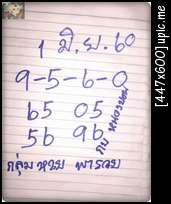 1 มิ.ย.60
9-5-6-0
65 05
56 96
กลุ่ม หวย พารวย
[447x600] upic.me